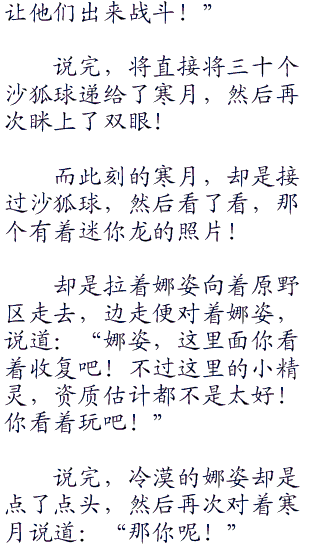 让他们出来战斗！”
说完，将直接将三十个
沙狐球递给了寒月，然后再
次眯上了双眼！
而此刻的寒月，却是接
过沙狐球，然后看了看，那
个有着迷你龙的照片！
却是拉着娜姿向着原野
区走去，边走便对着娜姿，
说道：“娜姿，这里面你看
着收复吧！不过这里的小精
灵，资质估计都不是太好！
你看着玩吧！”
说完，冷漠的娜姿却是
点了点头，然后再次对着寒
月说道：“那你呢！”